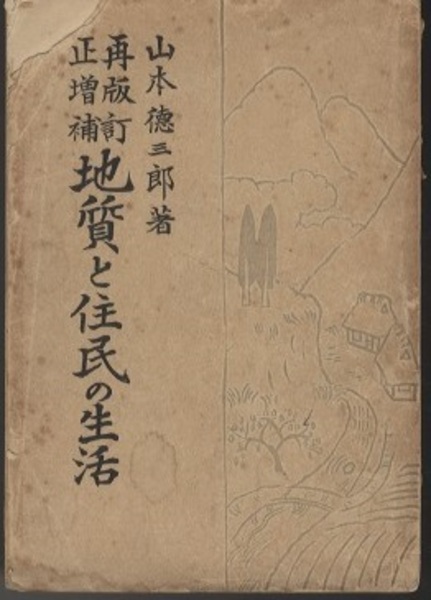 山本徳三郎著
再版訂
正増補
地質と住民の生活